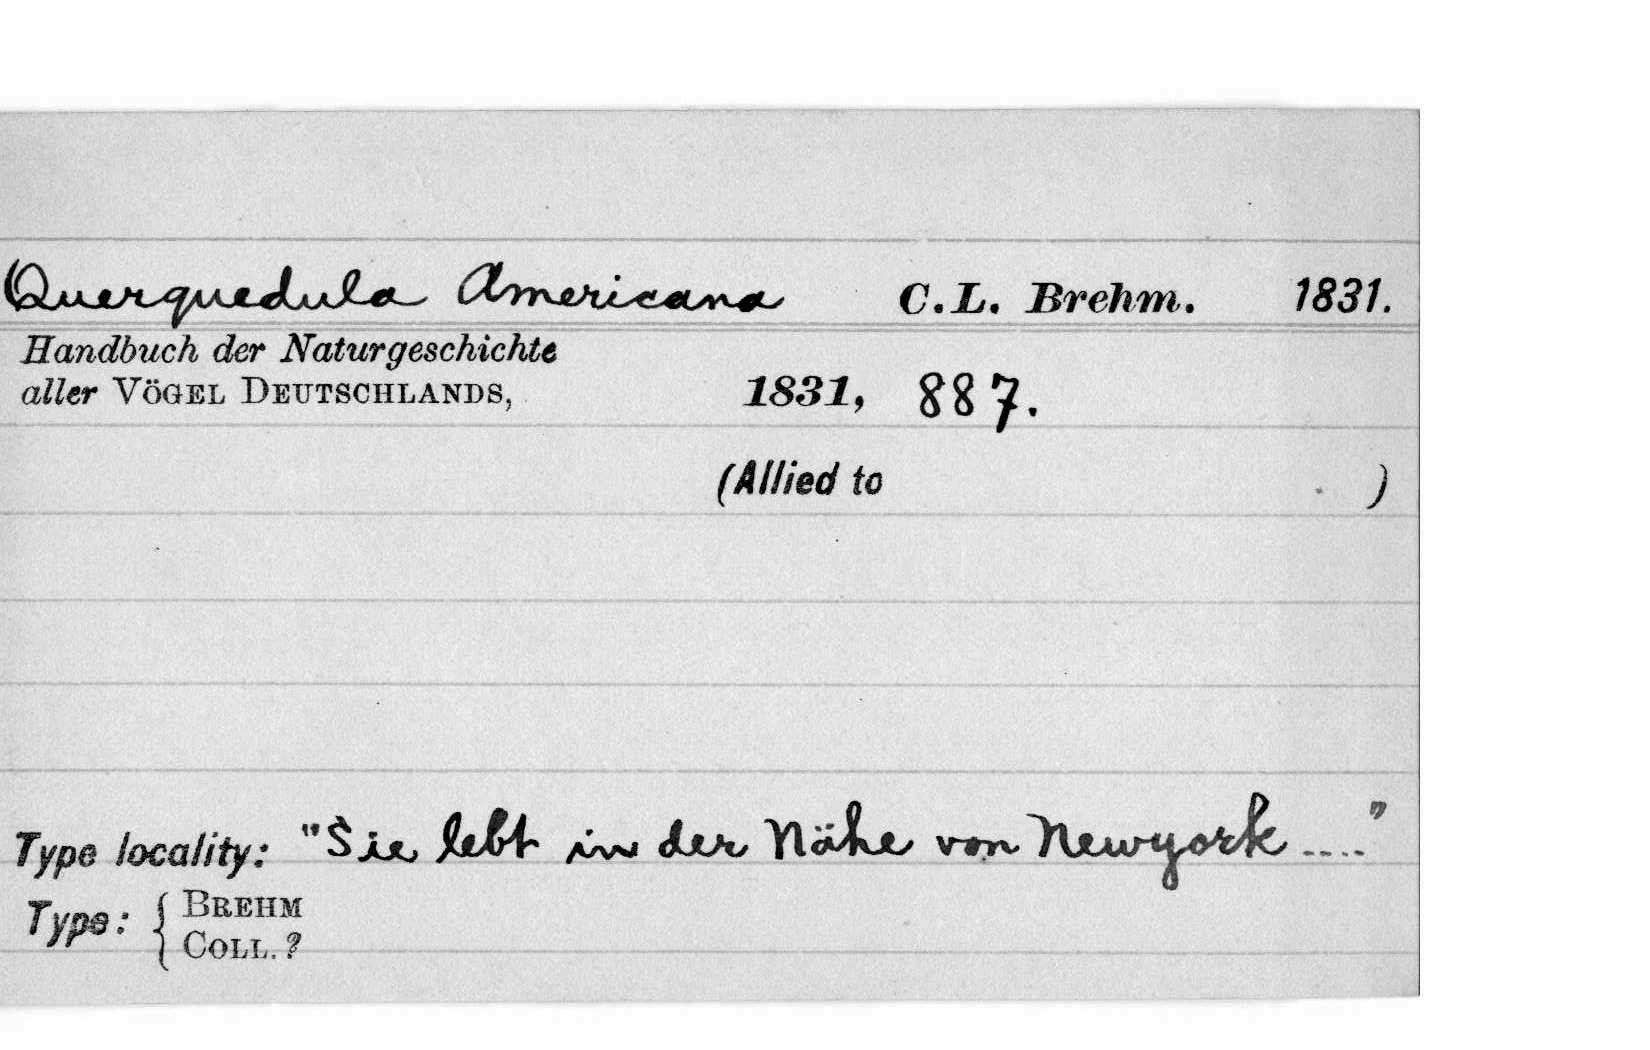 Querquedula Americana C.L. Brehm. 1831.
Handbuch der Naturgeschichte
aller VÖGEL DEUTSCHLANDS, 1831, 887.
(Allied to )
Type locality: "Sie lebt in der Nähe von Newyork ...."
Type: { BREHM
COLL. ?